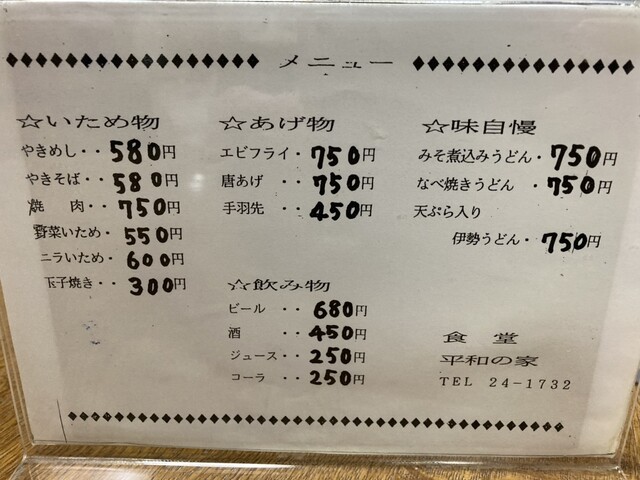 メニュー
☆いため物
やきめし・・580円
やきそば・・580円
焼 肉・・750円
野菜いため・550円
ニラいため・600円
玉子焼き・・300円
☆あげ物
エビフライ・750円
唐あげ・・750円
手羽先・・450円
☆飲み物
ビール・・680円
酒・・450円
ジュース・・250円
コーラ・・250円
☆味自慢
みそ煮込みうどん・750円
なべ焼きうどん・750円
天ぷら入り
伊勢うどん・750円
食 堂
平和の家
TEL 24-1732